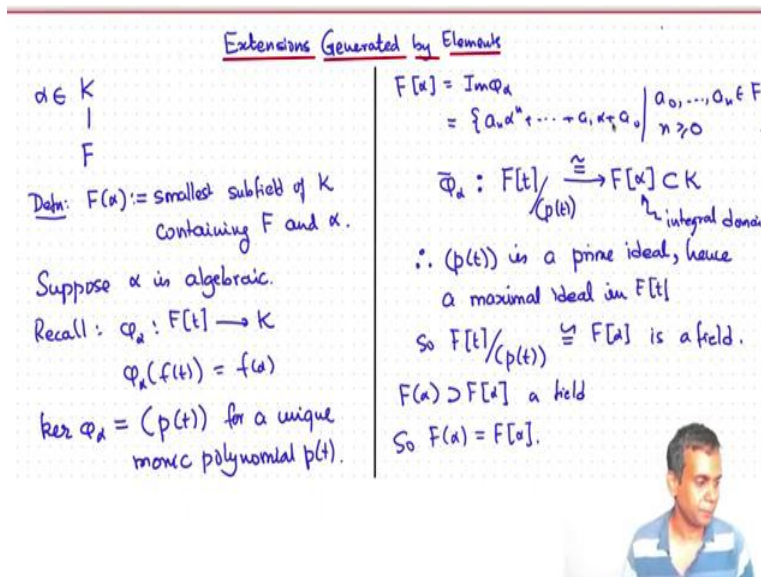 Extensions Generated by Elements
α ∈ K
|
F
Defn: F(α) := smallest subfield of K
containing F and α.
Suppose α is algebraic.
Recall: φ_α : F[t] → K
φ_α(f(t)) = f(α)
ker φ_α = (p(t)) for a unique
monic polynomial p(t).
F[α] = Im φ_α
= {a_n α^n + ... + a_1 α + a_0 | a_0, ..., a_n ∈ F
n ≥ 0
φ̄_α : F[t]/(p(t)) ≅→ F[α] ⊂ K
integral domain
∴ (p(t)) is a prime ideal, hence
a maximal ideal in F[t]
So F[t]/(p(t)) ≅ F[α] is a field.
F(α) ⊃ F[α] a field
So F(α) = F[α].